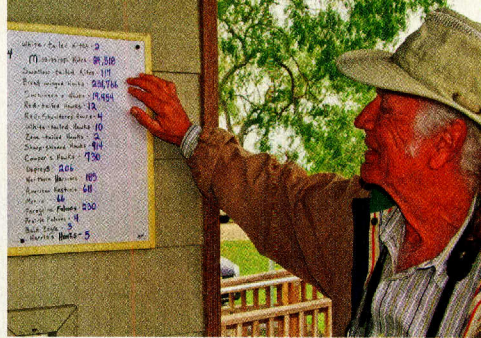 4
White-tailed Kites - 2
Mississippi Kites
Swallow-tailed Kites - 117
Broad-winged Hawks -
Swainson's Hawks - 19,454
Red-tailed Hawks - 12
Red-Shouldered Hawks - 4
White-tailed Hawks 10
Zone-tailed Hawks - 2
Sharp-shinned Hawks 914
Cooper's Hawks - 730
Ospreys 206
Northern Harriers 185
American Kestrels 611
Merlin - 66
Peregrine Falcons 230
Prairie Falcons - 4
Bald Eagle - 3
Harris's Hawks - 5